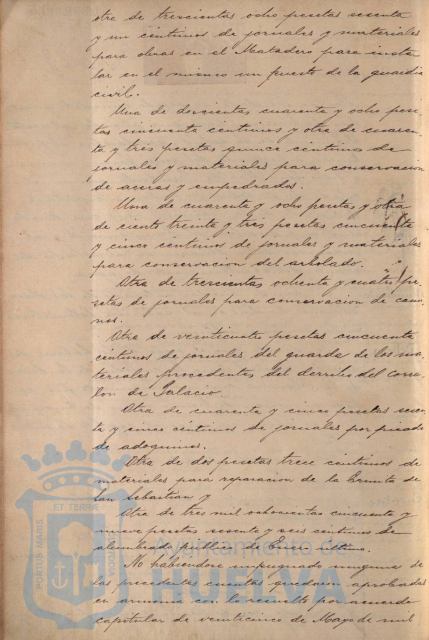 otra de trescientas ocho pesetas sesenta
y un céntimos de jornales y materiales
para obras en el Matadero para insta
lar en el mismo un puesto de la guardia
civil.
Una de doscientas cuarenta y ocho pese
tas cincuenta céntimos y otra de cuaren
ta y tres pesetas quince céntimos de
jornales y materiales para conservacion
de aceras y empedrados.
Una de cuarenta y ocho pesetas y otra
de ciento treinta y tres pesetas cincuenta
y cinco céntimos de jornales y materiales
para conservacion del arbolado.
Otra de trescientas ochenta y cuatro pe
setas de jornales para conservacion de cami
nos.
Otra de veinticuatro pesetas cincuenta
céntimos de jornales del guarda de los ma
teriales procedentes del derribo del Corra
lon de Palacio.
Otra de cuarenta y cinco pesetas sesen
ta y cinco céntimos de jornales por picado
de adoquines.
Otra de dos pesetas trece céntimos de
materiales para reparacion de la Ermita de
San Sebastian y
Otra de tres mil ochocientas cincuenta y
nueve pesetas sesenta y seis céntimos de
alumbrado público de Enero último.
No habiéndose impugnado ninguna de
las precedentes cuentas quedaron aprobadas
en armonia con lo resuelto por acuerdo
capitular de veinticinco de Mayo de mil
PORTUS MARIS
ET TERRE
Ayuntamiento de
HUELVA